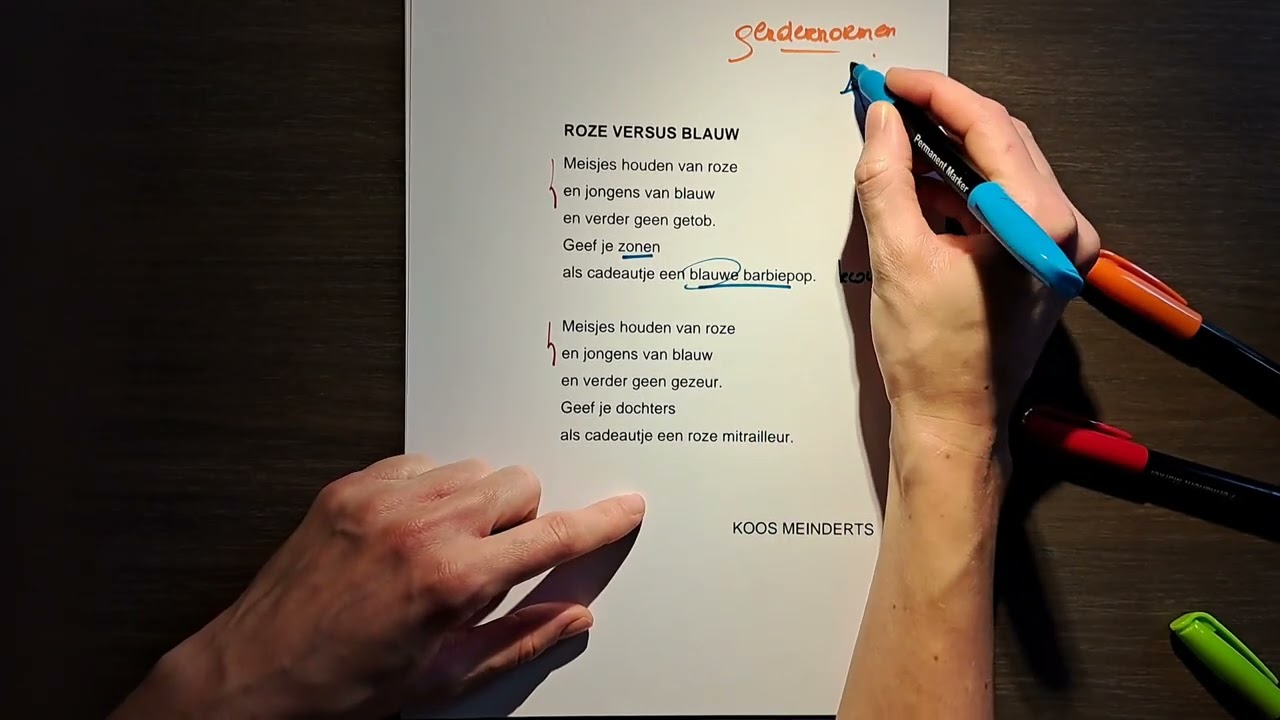 gendernormen
ROZE VERSUS BLAUW
Meisjes houden van roze
en jongens van blauw
en verder geen getob.
Geef je zonen
als cadeautje een blauwe barbiepop.
Meisjes houden van roze
en jongens van blauw
en verder geen gezeur.
Geef je dochters
als cadeautje een roze mitrailleur.
KOOS MEINDERTS
Permanent Marker